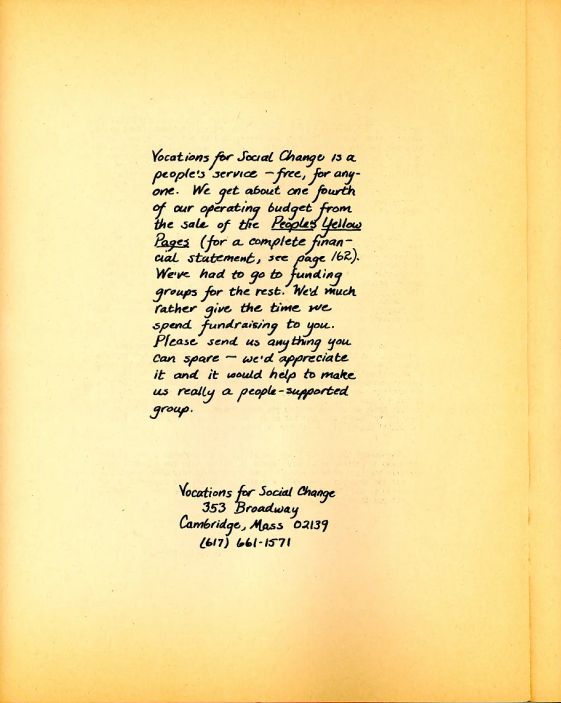 Vocations for Social Change is a
people's service – free, for any-
one. We get about one fourth
of our operating budget from
the sale of the People's Yellow
Pages (for a complete finan-
cial statement, see page 162).
We've had to go to funding
groups for the rest. We'd much
rather give the time we
spend fundraising to you.
Please send us anything you
can spare – we'd appreciate
it and it would help to make
us really a people-supported
group.
Vocations for Social Change
353 Broadway
Cambridge, Mass 02139
(617) 661-1571